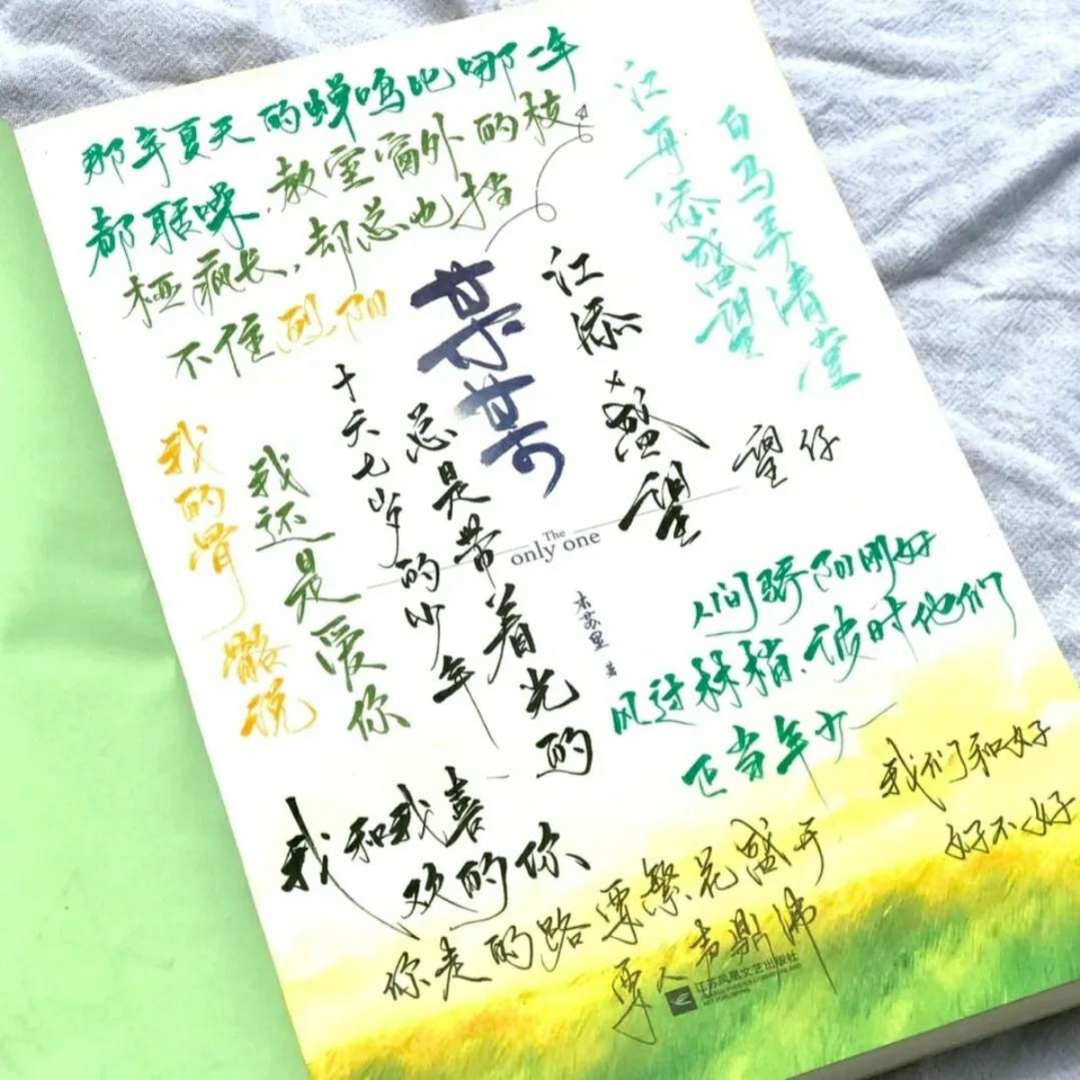 那年夏天的蝉鸣比哪一年
都聒噪,教室窗外的枝
桠疯长,却总也挡
不住烈阳
江再添盛望
白马弄清堂
某某
江添×盛望
望仔
十六七岁的少年
总是带着光的
我还是爱你
我的骨骼说
The
only one
木苏里 著
人间骄阳刚好
风过林梢,彼时他们
正当年少
我和我喜
欢的你
我们和好
好不好
你走的路要繁花盛开
要人声鼎沸
江苏凤凰文艺出版社